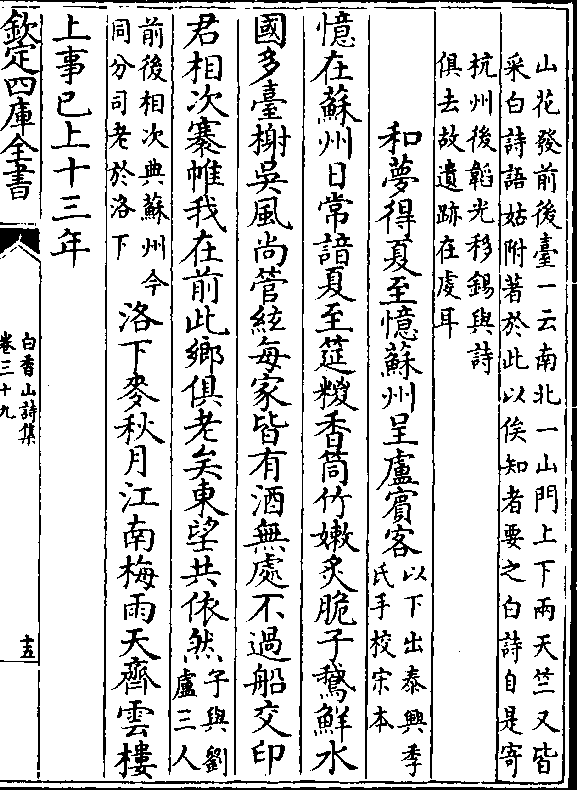 山花發前後臺一云南北一山門上下兩天竺又皆
采白詩語姑附著於此以俟知者要之白詩自是寄
杭州後韜光移錫與詩
俱去故遺跡在虔耳
和夢得夏至憶蘇州呈盧賓客以下出泰興季
氏手校宋本
憶在蘇州日常諳夏至筵糉香筒竹嫩炙脆子鵝鮮水
國多臺榭吳風尚管絃每家皆有酒無處不過船交印
君相次褰帷我在前此鄉俱老矣東望共依然予與劉
盧三人
前後相次典蘇州今
同分司老於洛下
洛下麥秋月江南梅雨天齊雲樓
上事已上十三年
欽定四庫全書
白香山詩集
卷三十九
十五